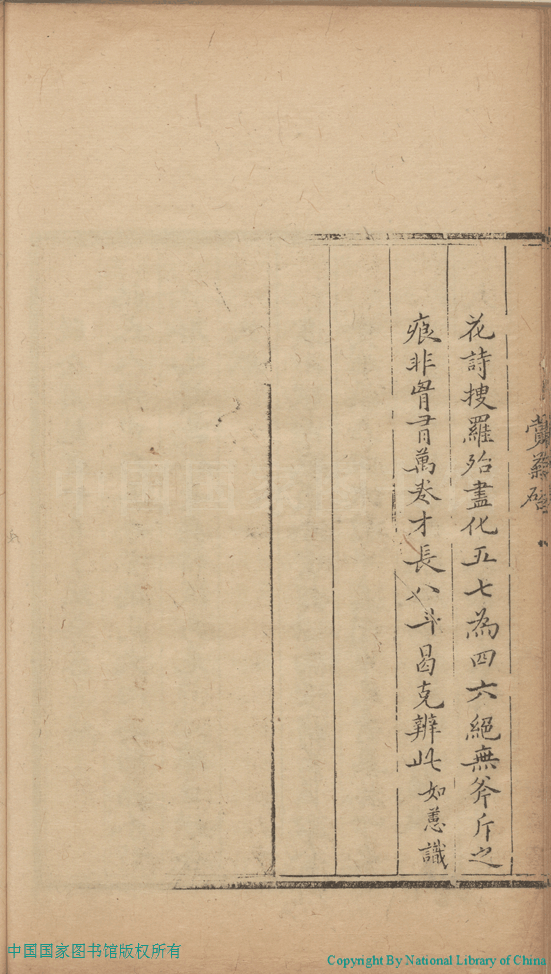 花詩搜羅殆盡化五七為四六絕無斧斤之
痕非胷有萬卷才長八斗曷克辦此如蕙識
中国国家图书馆版权所有
Copyright By National Library of China